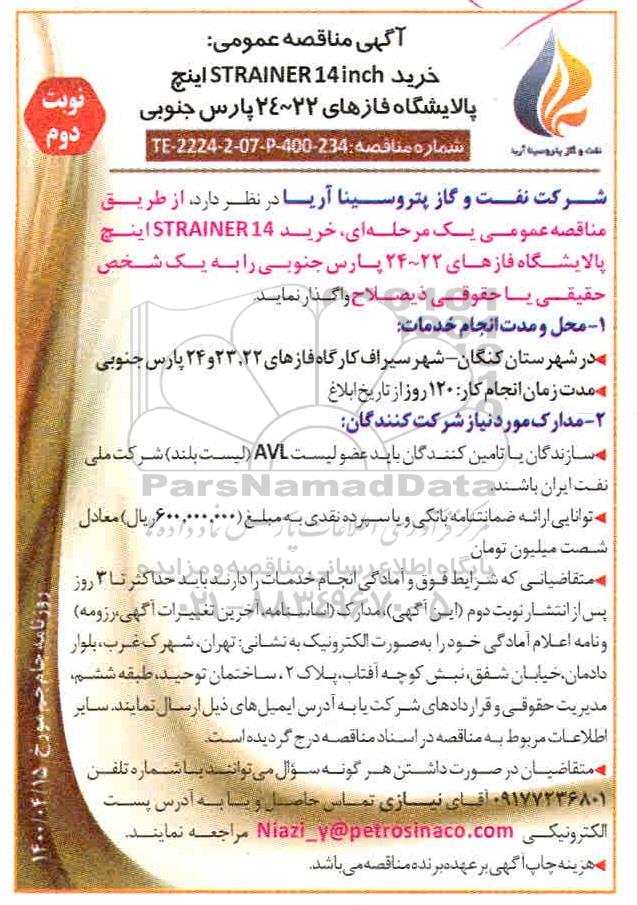 آگهی مناقصه عمومی:
خرید STRAINER 14 inch اینچ
پالایشگاه فازهای ۲۲~۲۴ پارس جنوبی
شماره مناقصه: TE-2224-2-07-P-400-234
نوبت
دوم
نفت و گاز پتروسینا آریا
شرکت نفت و گاز پتروسینا آریا در نظر دارد، از طریق
مناقصه عمومی یک مرحله‌ای، خرید STRAINER 14 اینچ
پالایشگاه فازهای ۲۲~۲۴ پارس جنوبی را به یک شخص
حقیقی یا حقوقی ذیصلاح واگذار نماید.
۱- محل و مدت انجام خدمات:
در شهرستان کنگان – شهر سیراف کارگاه فازهای ۲۳،۲۲ و ۲۴ پارس جنوبی
مدت زمان انجام کار: ۱۲۰ روز از تاریخ ابلاغ
۲- مدارک مورد نیاز شرکت کنندگان:
سازندگان یا تامین کنندگان باید عضو لیست AVL (لیست بلند) شرکت ملی
نفت ایران باشند.
توانایی ارائه ضمانتنامه بانکی و یا سپرده نقدی به مبلغ (۶۰۰,۰۰۰,۰۰۰ ریال) معادل
شصت میلیون تومان
متقاضیانی که شرایط فوق و آمادگی انجام خدمات را دارند باید حداکثر تا ۳ روز
پس از انتشار نوبت دوم (این آگهی)، مدارک (اساسنامه، آخرین تغییرات آگهی، رزومه)
و نامه اعلام آمادگی خود را به صورت الکترونیک به نشانی: تهران، شهرک غرب، بلوار
دادمان، خیابان شفق، نبش کوچه آفتاب، پلاک ۲، ساختمان توحید، طبقه ششم،
مدیریت حقوقی و قراردادهای شرکت یا به آدرس ایمیل‌های ذیل ارسال نمایند. سایر
اطلاعات مربوط به مناقصه در اسناد مناقصه درج گردیده است.
متقاضیان در صورت داشتن هر گونه سؤال می‌توانند با شماره تلفن
۰۹۱۷۷۲۳۶۸۰۱ آقای نیازی تماس حاصل و یا به آدرس پست
الکترونیکی Niazi_y@petrosinaco.com مراجعه نمایند.
هزینه چاپ آگهی بر عهده برنده مناقصه می‌باشد.
روزنامه جام جم مورخ ۱۴۰۰/۰۴/۱۵
ParsNamadData
پایگاه اطلاع رسانی مناقصه و مزایده
۰۲۱-۸۸۳۴۹۶۷۰-۵